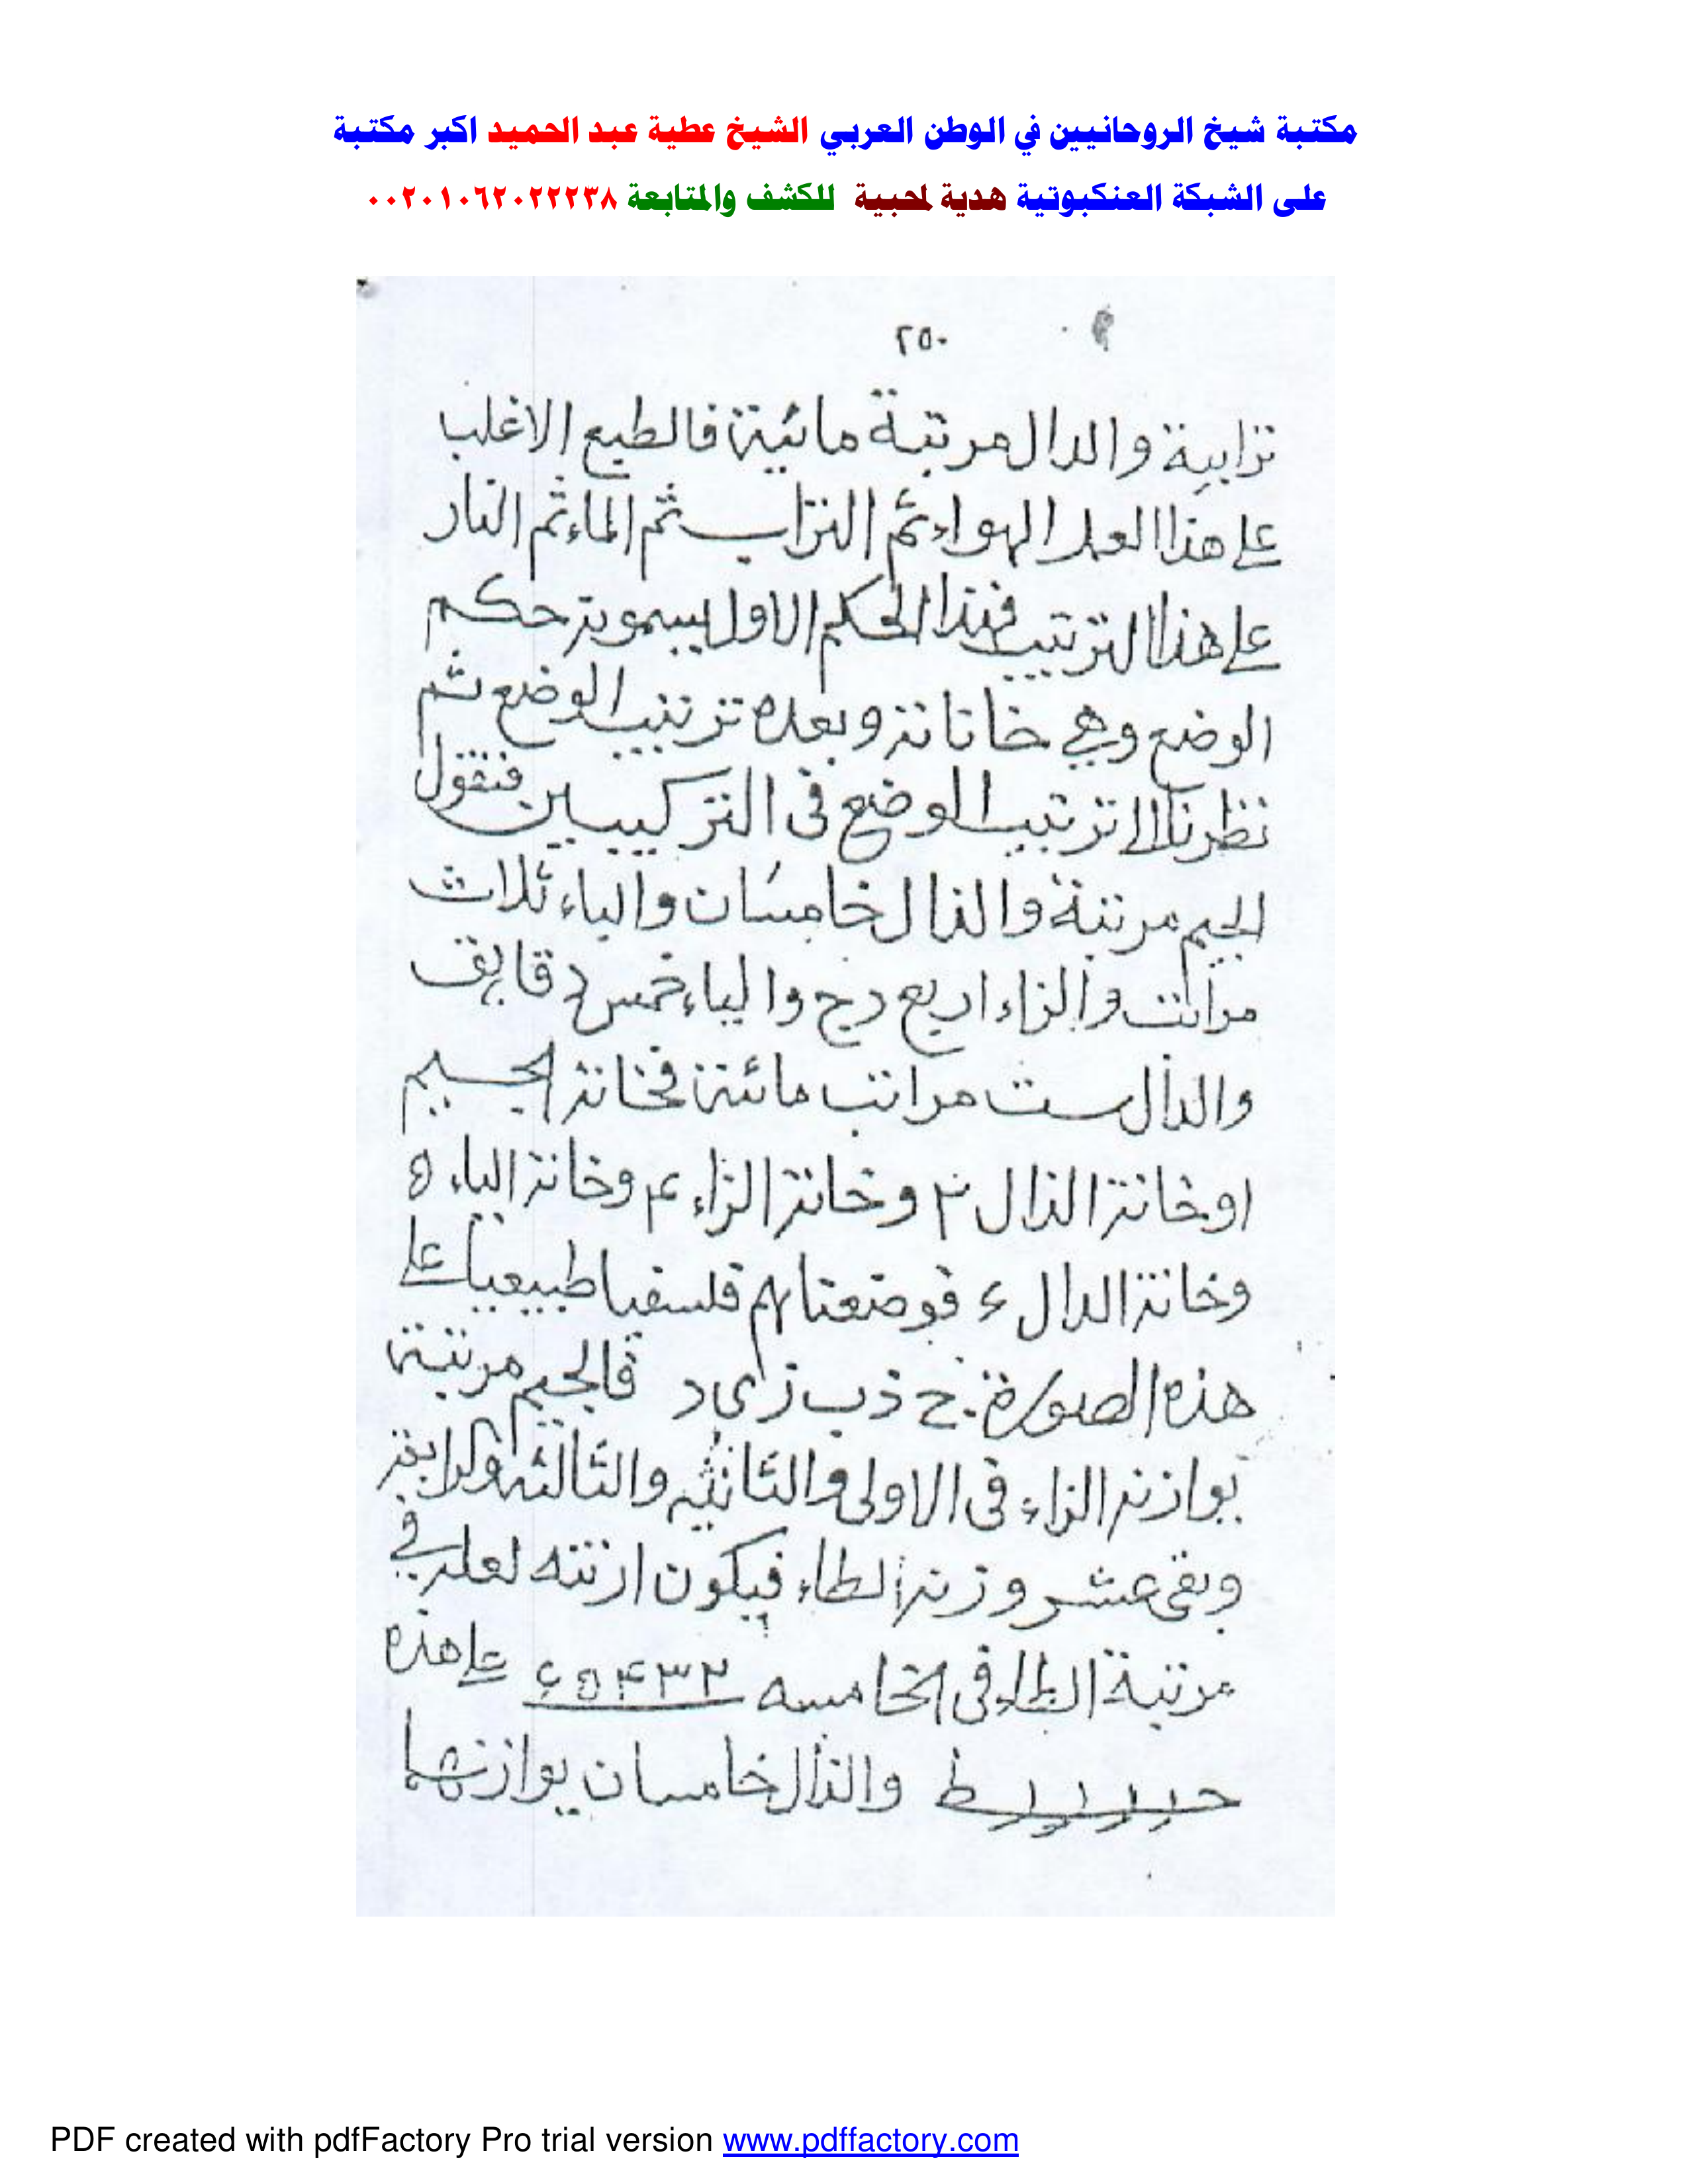 مكتبة شيخ الروحانيين في الوطن العربي الشيخ عطية عبد الحميد اكبر مكتبة
على الشبكة العنكبوتية هدية لمحبية للكشف والمتابعة ٠٠٢٠١٠٦٢٠٢٢٢٣٨
٢٥٠
ترابية والدال مرتبة مائية فالطبع الاغلب
على هذا العمل الهواء ثم التراب ثم الماء ثم النار
على هذا الترتيب فهذا الحكم الاول يسمونه حكم
الوضع وهي خاناته وبعده ترتيب الوضع ثم
نظرنا الى ترتيب الوضع فى التركيبين فنقول
الجيم مرتبة والذال خامسان والباء ثلاث
مراتب والزاء اربع درج والياء خمس دقايق
والدال ست مراتب مائية فخانة الجيم
ا وخانة الذال ٢ وخانة الزاء ٤ وخانة الياء ٥
وخانة الدال ٤ فوضعناهم فلسفيا طبيعيا على
هذه الصورة ج ذ ب ز ى د فالجيم مرتبة
يوازنه الزاء فى الاولى والثانيه والثالثه والرابعة
وبقى عشر وزنه الطاء فيكون
مرتبة الطاء فى الخامسه على هذه
والذال خامسان يوازنها
PDF created with pdfFactory Pro trial version www.pdffactory.com